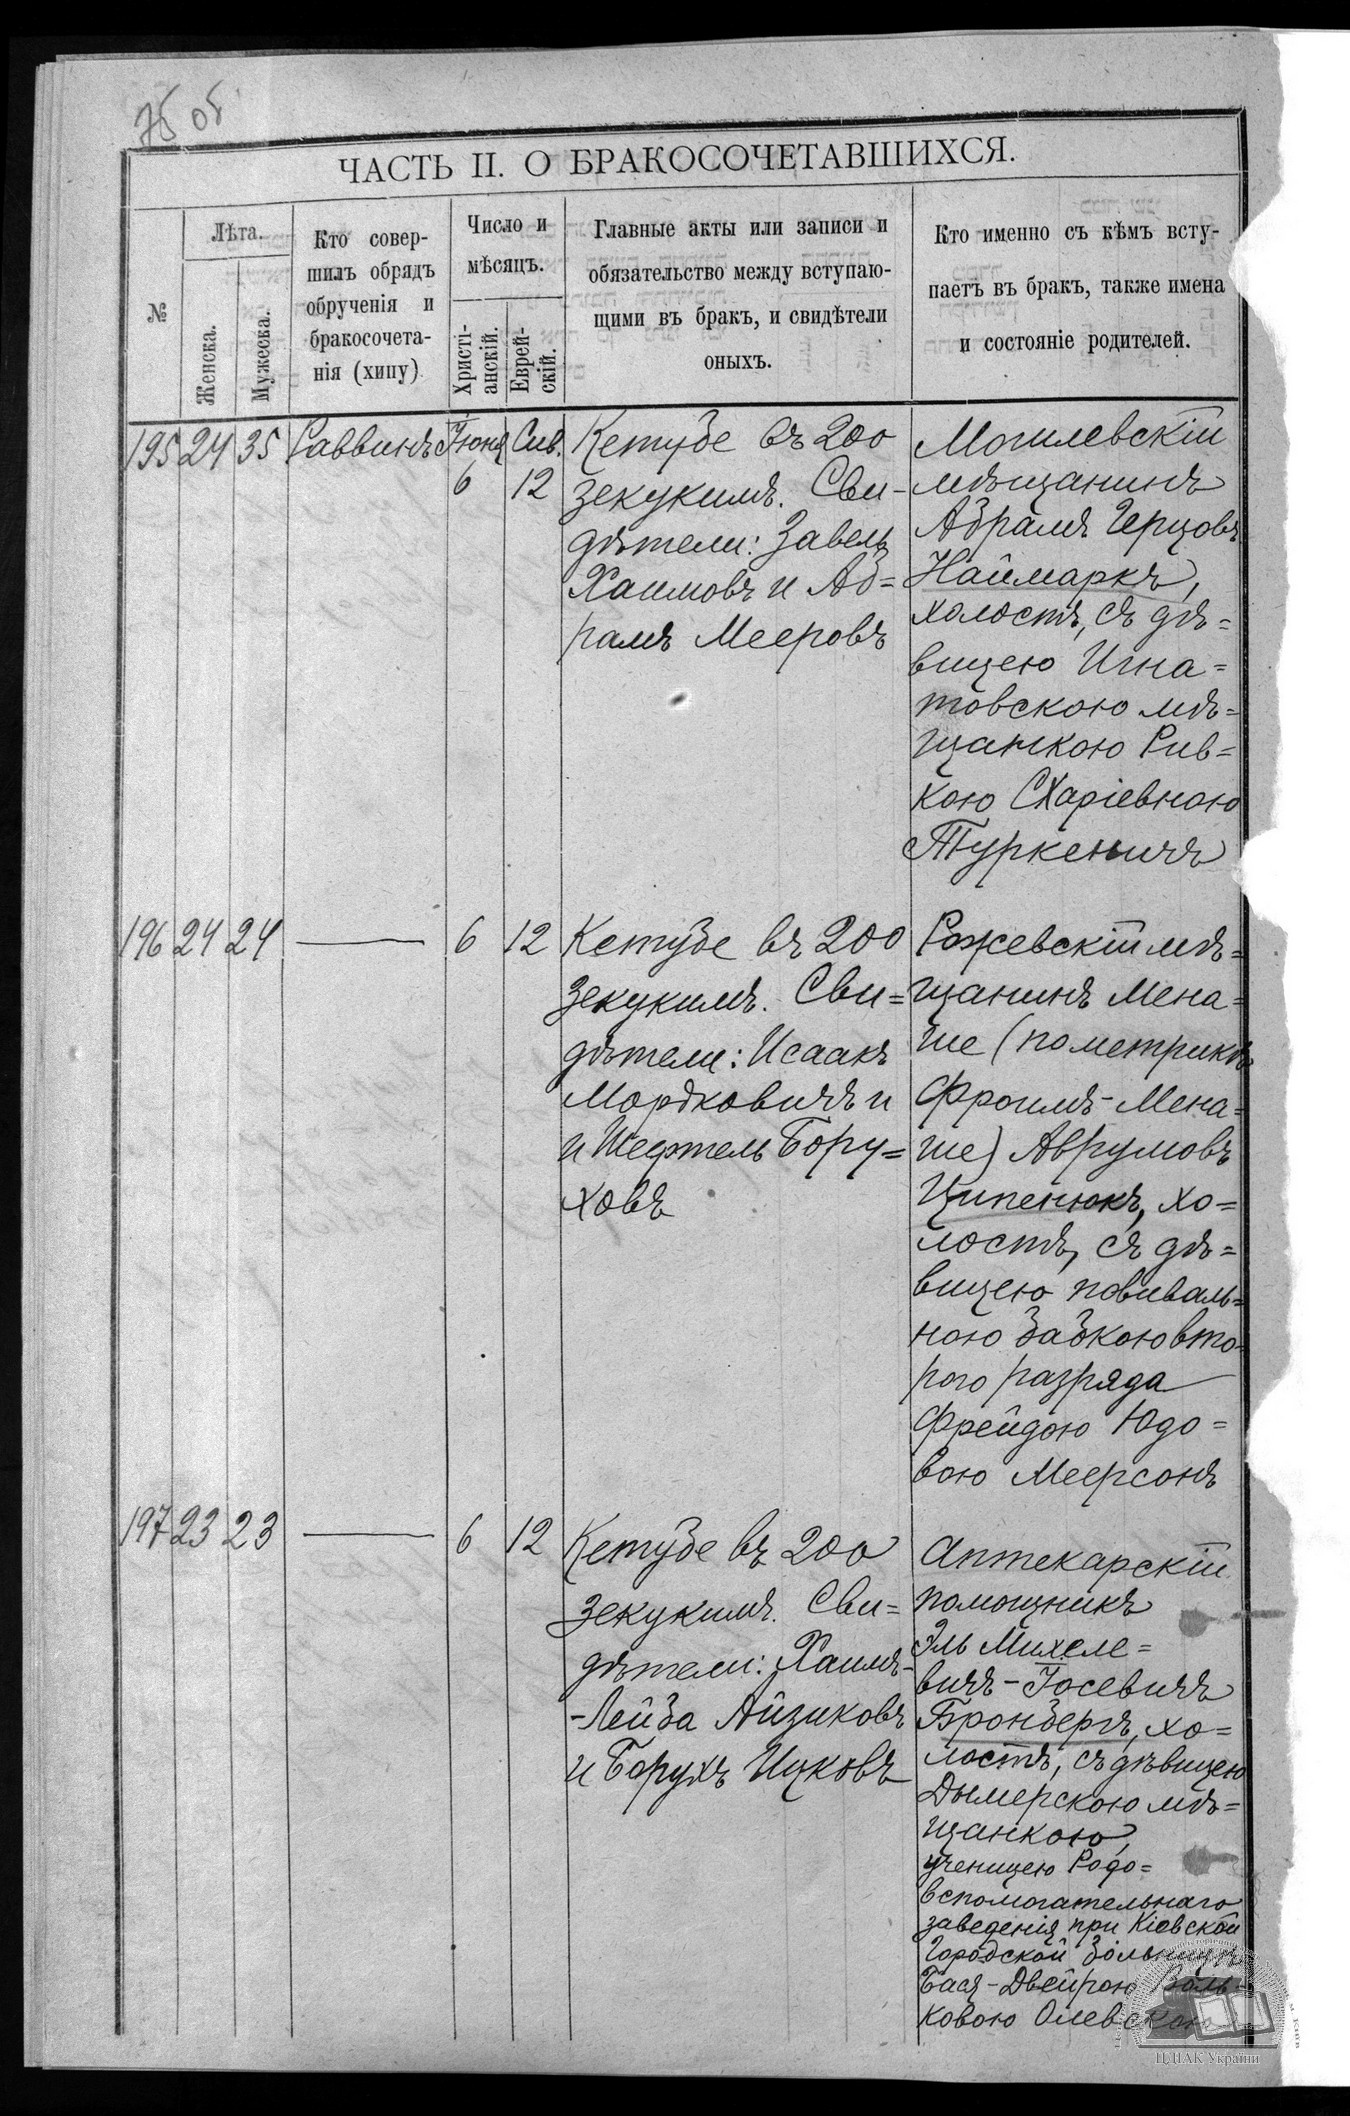 75 об
ЧАСТЬ II. О БРАКОСОЧЕТАВШИХСЯ.
№
Лѣта.
Женска.
Мужеска.
Кто совер-
шилъ обрядъ
обрученія и
бракосочета-
нія (хипу)
Число и
мѣсяцъ.
Христі-
анскій.
Еврей-
скій.
Главные акты или записи и
обязательство между вступаю-
щими въ бракъ, и свидѣтели
оныхъ.
Кто именно съ кѣмъ всту-
паетъ въ бракъ, также имена
и состояніе родителей.
195 24 35 Раввинъ Іюня 6 Сив. 12
Кетубе въ 200
зекукимъ. Сви-
дѣтели: Завель
Хаимовъ и Аб=
рамъ Мееровъ
Могилевскій
мѣщанинъ
Абрамъ Герцовъ
Наймаркъ,
холостъ, съ дѣ=
вицею Игна=
товскою мѣ=
щанкою Рив=
кою Схаріевною
Туркеничъ
196 24 24 — 6 12
Кетубе въ 200
зекукимъ. Сви=
дѣтели: Исаакъ
Мордковичъ и
и Шефтель Бору=
ховъ
Рожевскій мѣ=
щанинъ Мена=
ше (по метрикѣ
Фроимъ-Мена=
ше) Аврумовъ
Ципенюкъ, хо=
лостъ, съ дѣ=
вицею повиваль=
ною бабкою вто-
рого разряда
Фрейдою Юдо=
вою Меерсонъ
197 23 23 — 6 12
Кетубе въ 200
зекукимъ. Сви=
дѣтели: Хаимъ-
-Лейба Айзиковъ
и Борухъ Ицковъ
Аптекарскій
помощникъ
Эль Михеле=
вичъ-Іосевичъ
Бронбергъ, хо=
лостъ, съ дѣвицею
Дымерскою мѣ=
щанкою,
ученицею Родо=
вспомогательнаго
заведенія при Кіевской
Городской больницѣ
Бася-Двейрою Воль-
ковою Олевскою
ЦДІАК України